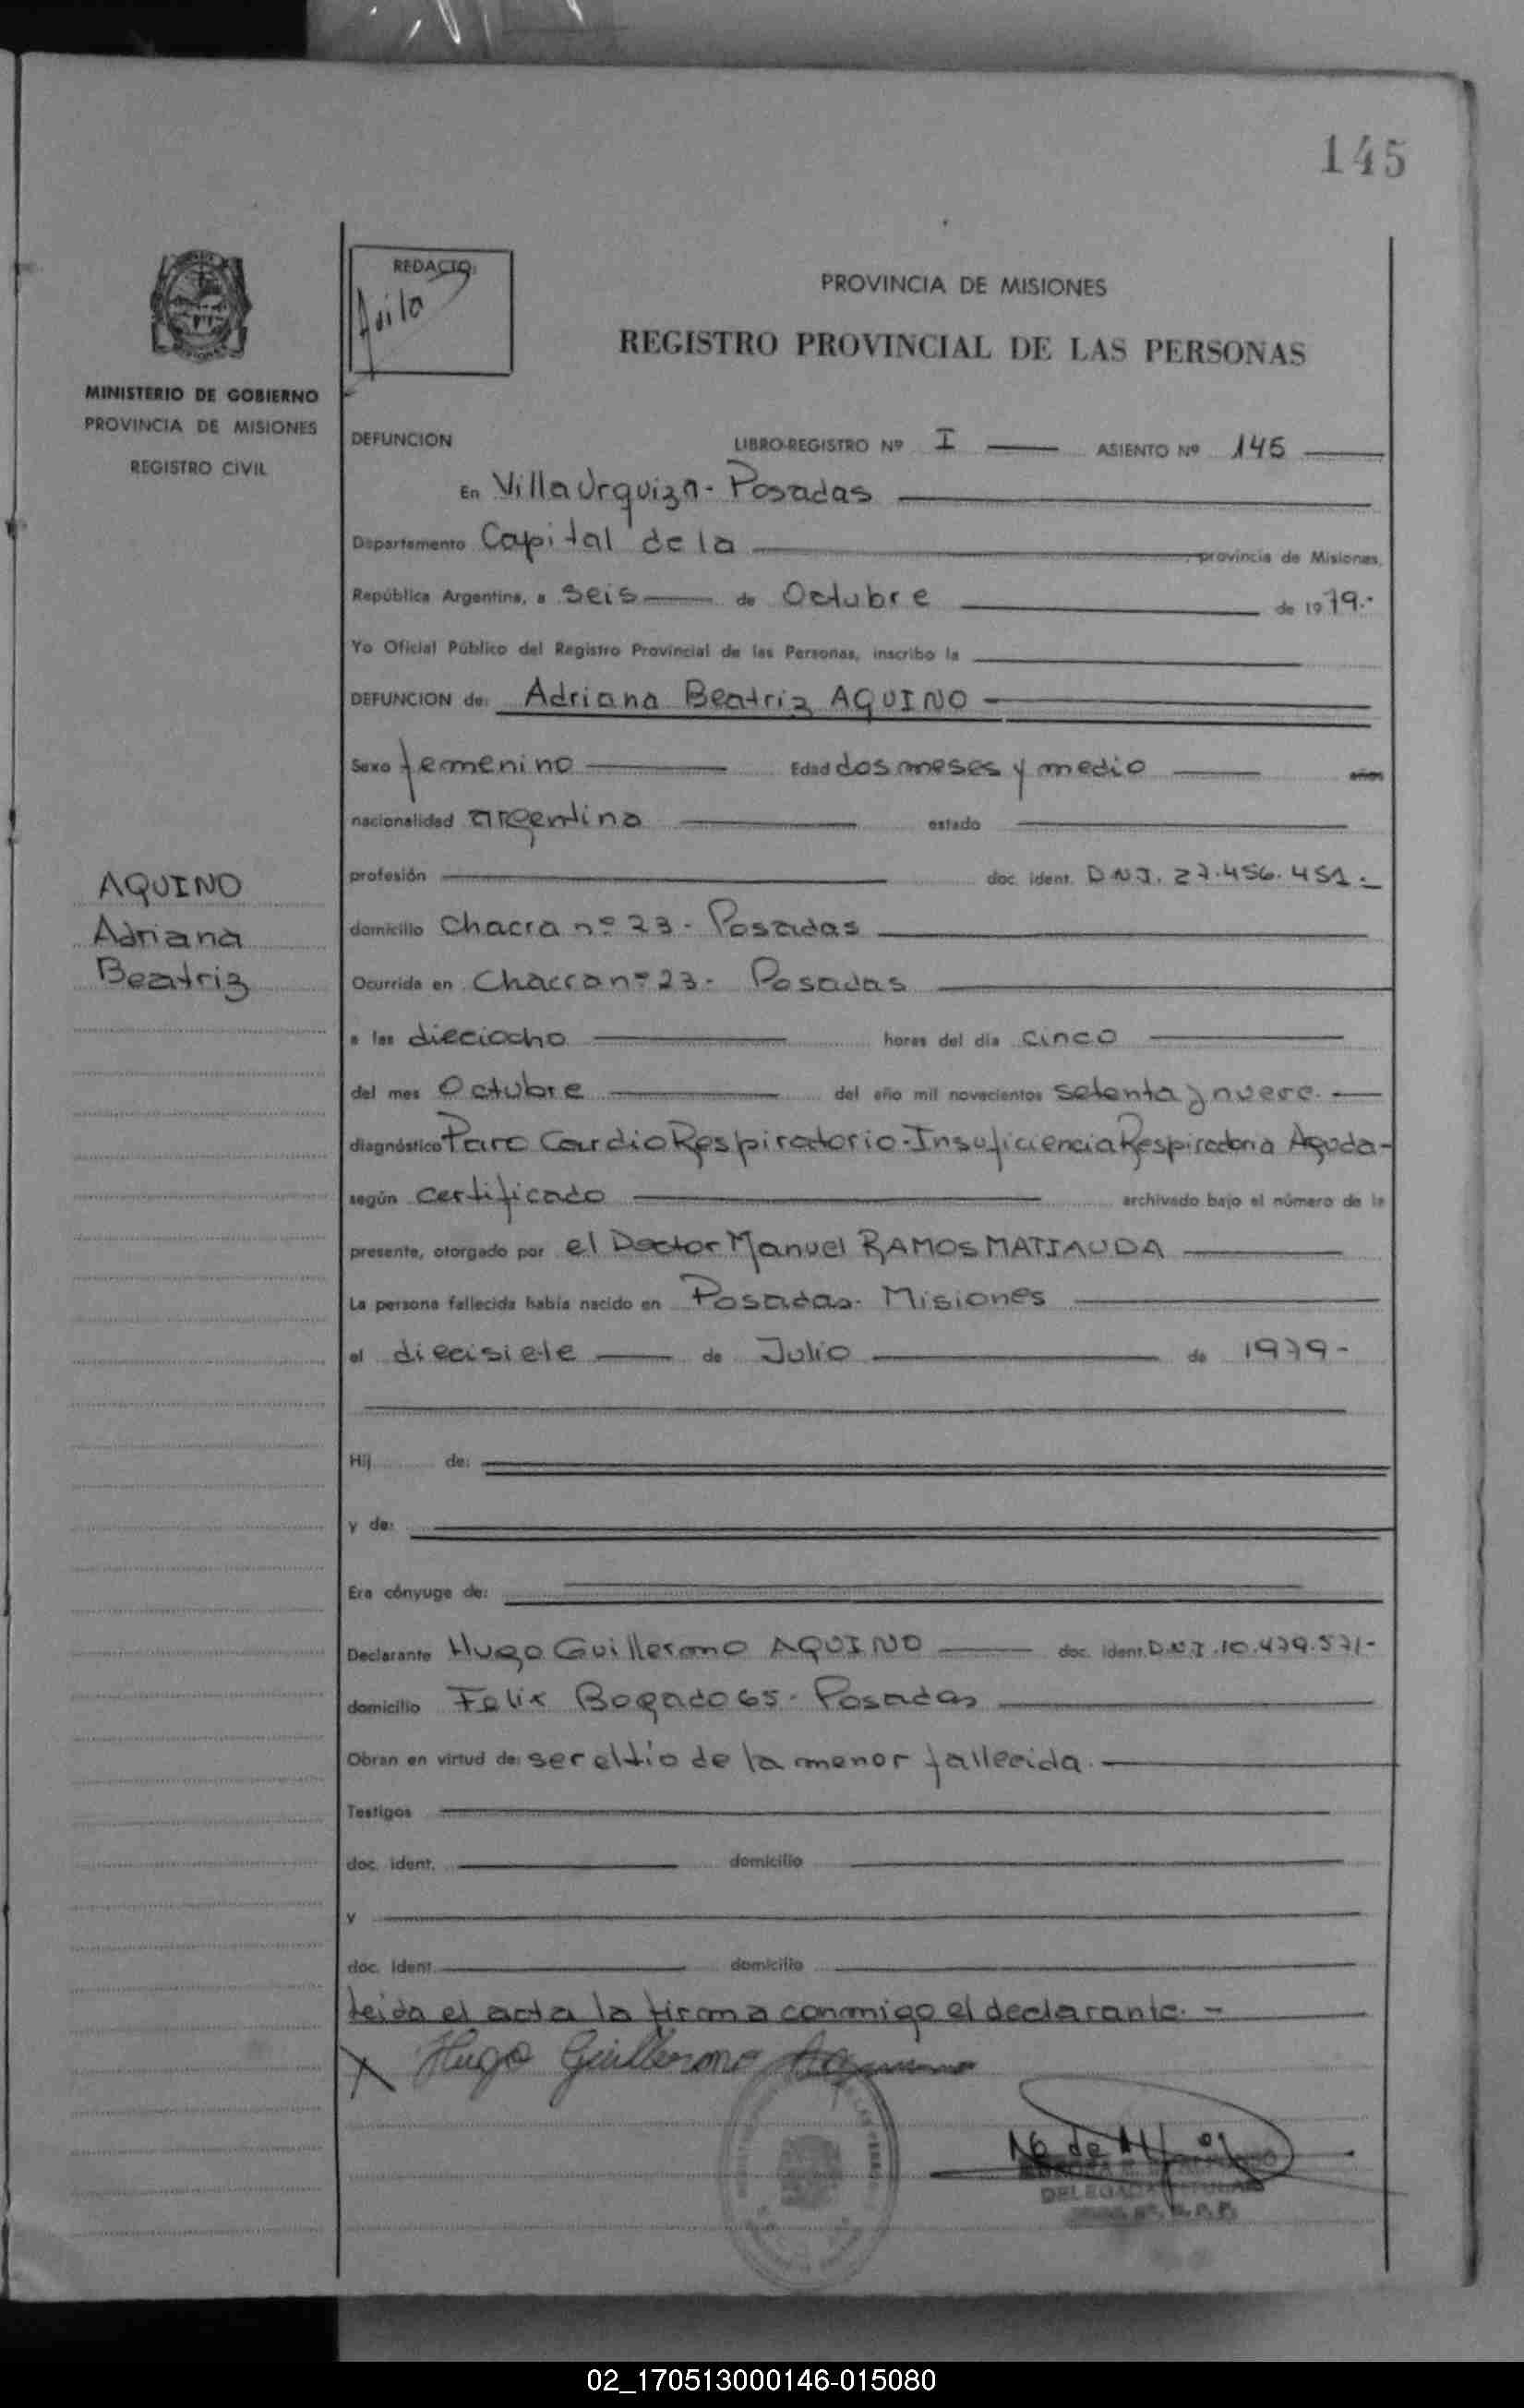 145
MINISTERIO DE GOBIERNO
PROVINCIA DE MISIONES
REGISTRO CIVIL
REDACTO:
Avila
PROVINCIA DE MISIONES
REGISTRO PROVINCIAL DE LAS PERSONAS
DEFUNCION LIBRO-REGISTRO Nº I ASIENTO Nº 145
En Villa Urquiza - Posadas
Departamento Capital de la provincia de Misiones,
República Argentina, a seis de Octubre de 1979.-
Yo Oficial Público del Registro Provincial de las Personas, inscribo la
DEFUNCION de: Adriana Beatriz AQUINO
Sexo femenino Edad dos meses y medio años
nacionalidad argentina estado
profesión doc. ident. D.N.I. 27.456.451.-
AQUINO
Adriana
Beatriz
domicilio Chacra nº 23 - Posadas
Ocurrida en Chacra nº 23 - Posadas
a las dieciocho horas del día cinco
del mes Octubre del año mil novecientos setenta y nueve.
diagnóstico Paro Cardio Respiratorio - Insuficiencia Respiratoria Aguda -
según certificado archivado bajo el número de la
presente, otorgado por el Doctor Manuel RAMOS MATIAUDA
La persona fallecida había nacido en Posadas - Misiones
el diecisiete de Julio de 1979 -
Hij de:
y de:
Era cónyuge de:
Declarante Hugo Guillermo AQUINO doc. ident. D.N.I. 10.479.571 -
domicilio Felix Bogado 65 - Posadas
Obran en virtud de: ser el tío de la menor fallecida.
Testigos
doc. ident. domicilio
y
doc. ident. domicilio
Leida el acta la firma conmigo el declarante. -
X Hugo Guillermo Aquino
DELEGADA TITULAR
02_170513000146-015080